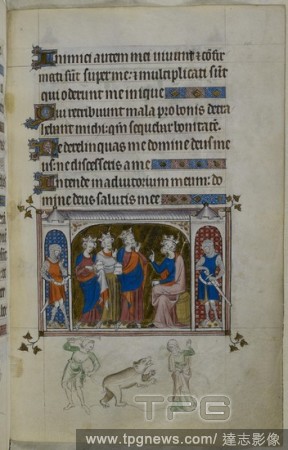 Inimici autem mei vivunt & cõfir
mati sũt super me: & multiplicati sũt
qui oderunt me inique
Qui retribuunt mala pro bonis detra
hebant michi: qm̃ sequebar bonitatẽ.
Ne derelinquas me domine deus me
us: ne discesseris a me
Intende in adiutorium meum: do
mine deus salutis mee
TPG
www.tpgnews.com/ 達志影像